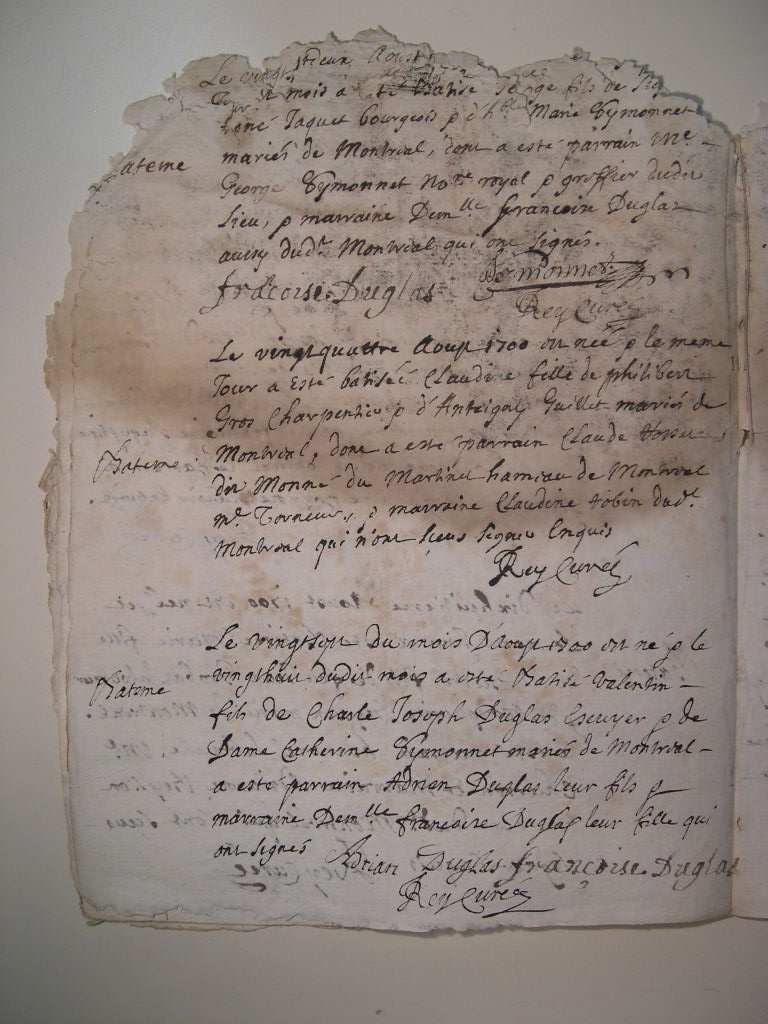 Le vingt deux Aoust
mois a Batisé fils de
Jaquet bourgeois p d'h^lle Marie Eymonnet
mariés de Montreal, dont a esté parrain M^e
George Eymonnet No^re royal p greffier dudit
lieu, p marraine Dem^lle françoise Duglas
aussy dud^t Montreal qui ont signés.
françoise Duglas Eymonnet
Rey Curé
Le vingtquattre Aoust 1700 est neé p le meme
Jour a esté batiseé Claudine fille de philibert
Gros Charpentier p d'Anteigne Guillet mariés de
Montreal, dont a esté parrain Claude
dit Monné du Martinet hameau de Montreal
m^e Torneur, p marraine Claudine dud^t
Montreal qui n'ont sceus signer Enquis
Bateme
Rey Curé
Le vingtsept du mois D'Aoust 1700 est né p le
vingthuit dudit mois a esté Batisé Valentin
Bateme
fils de Charle Joseph Duglas Escuyer p de
Dame Catherine Eymonnet mariés de Montreal
a esté parrain Adrian Duglas leur fils p
marraine Dem^lle françoise Duglas leur fille qui
ont signés
Adrian Duglas françoise Duglas
Rey Curé